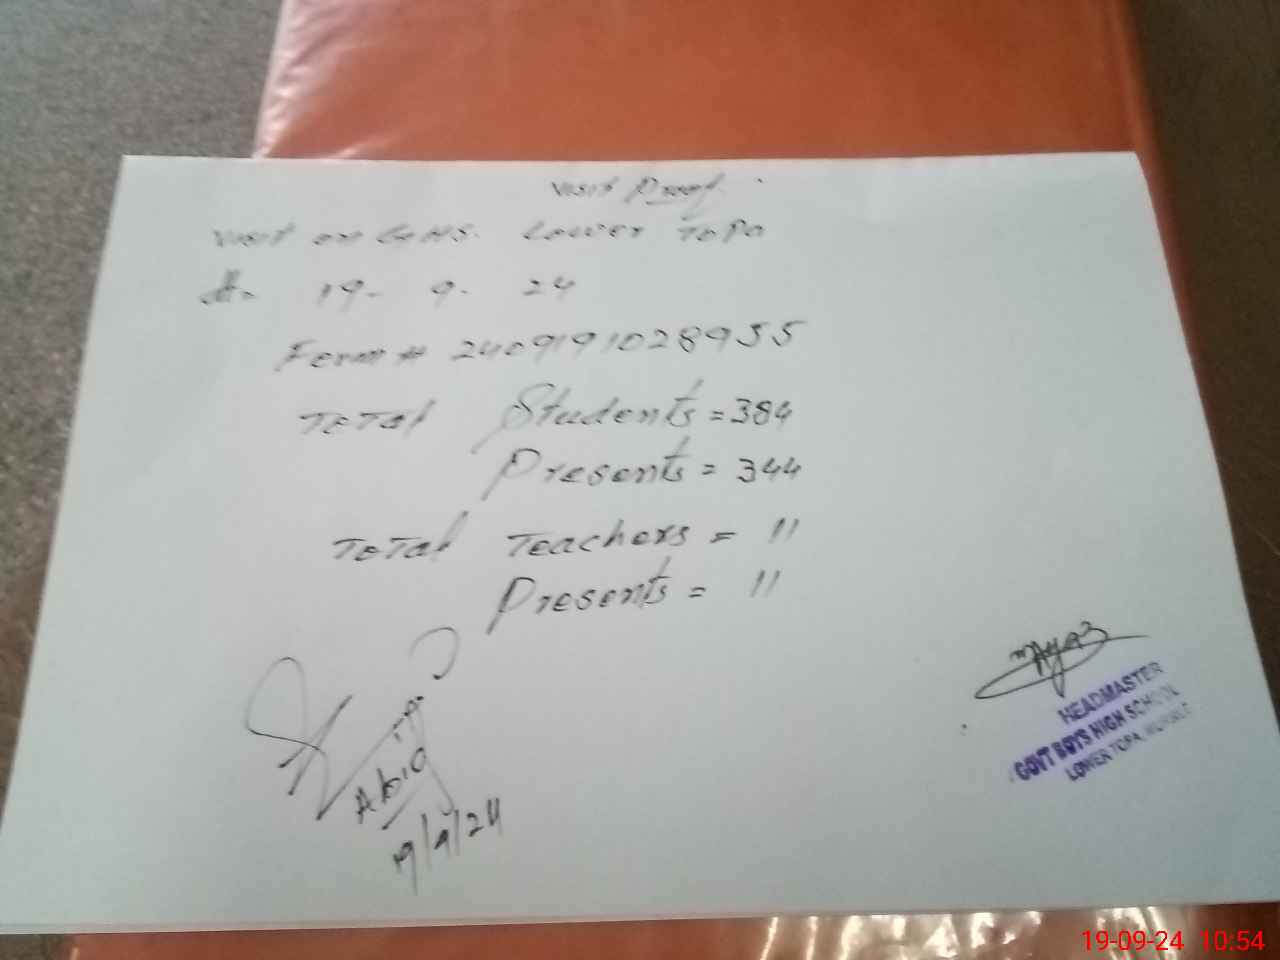 Visit Proof
Visit on GHS. Lower Topa
dt. 19- 9- 24
Form # 2409191028955
Total Students = 384
Presents = 344
Total Teachers = 11
Presents = 11
19/9/24
HEADMASTER
GOVT BOYS HIGH SCHOOL
LOWER TOPA, MURREE
19-09-24 10:54